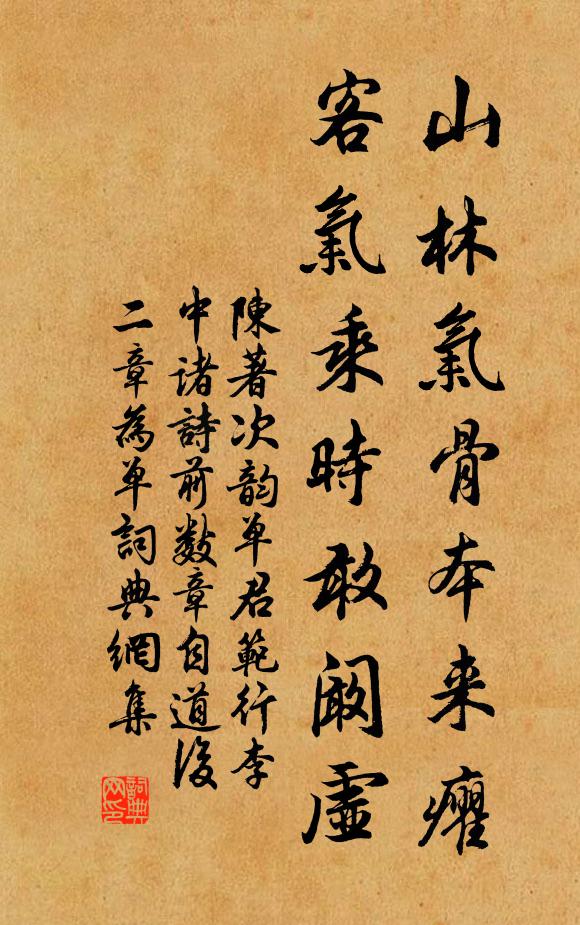 山林氣骨本来癯
客氣乘時敢闞虛
陳著次韵单君範行李
中诸詩前数章自道後
二章為单詞典網集
詞典网印